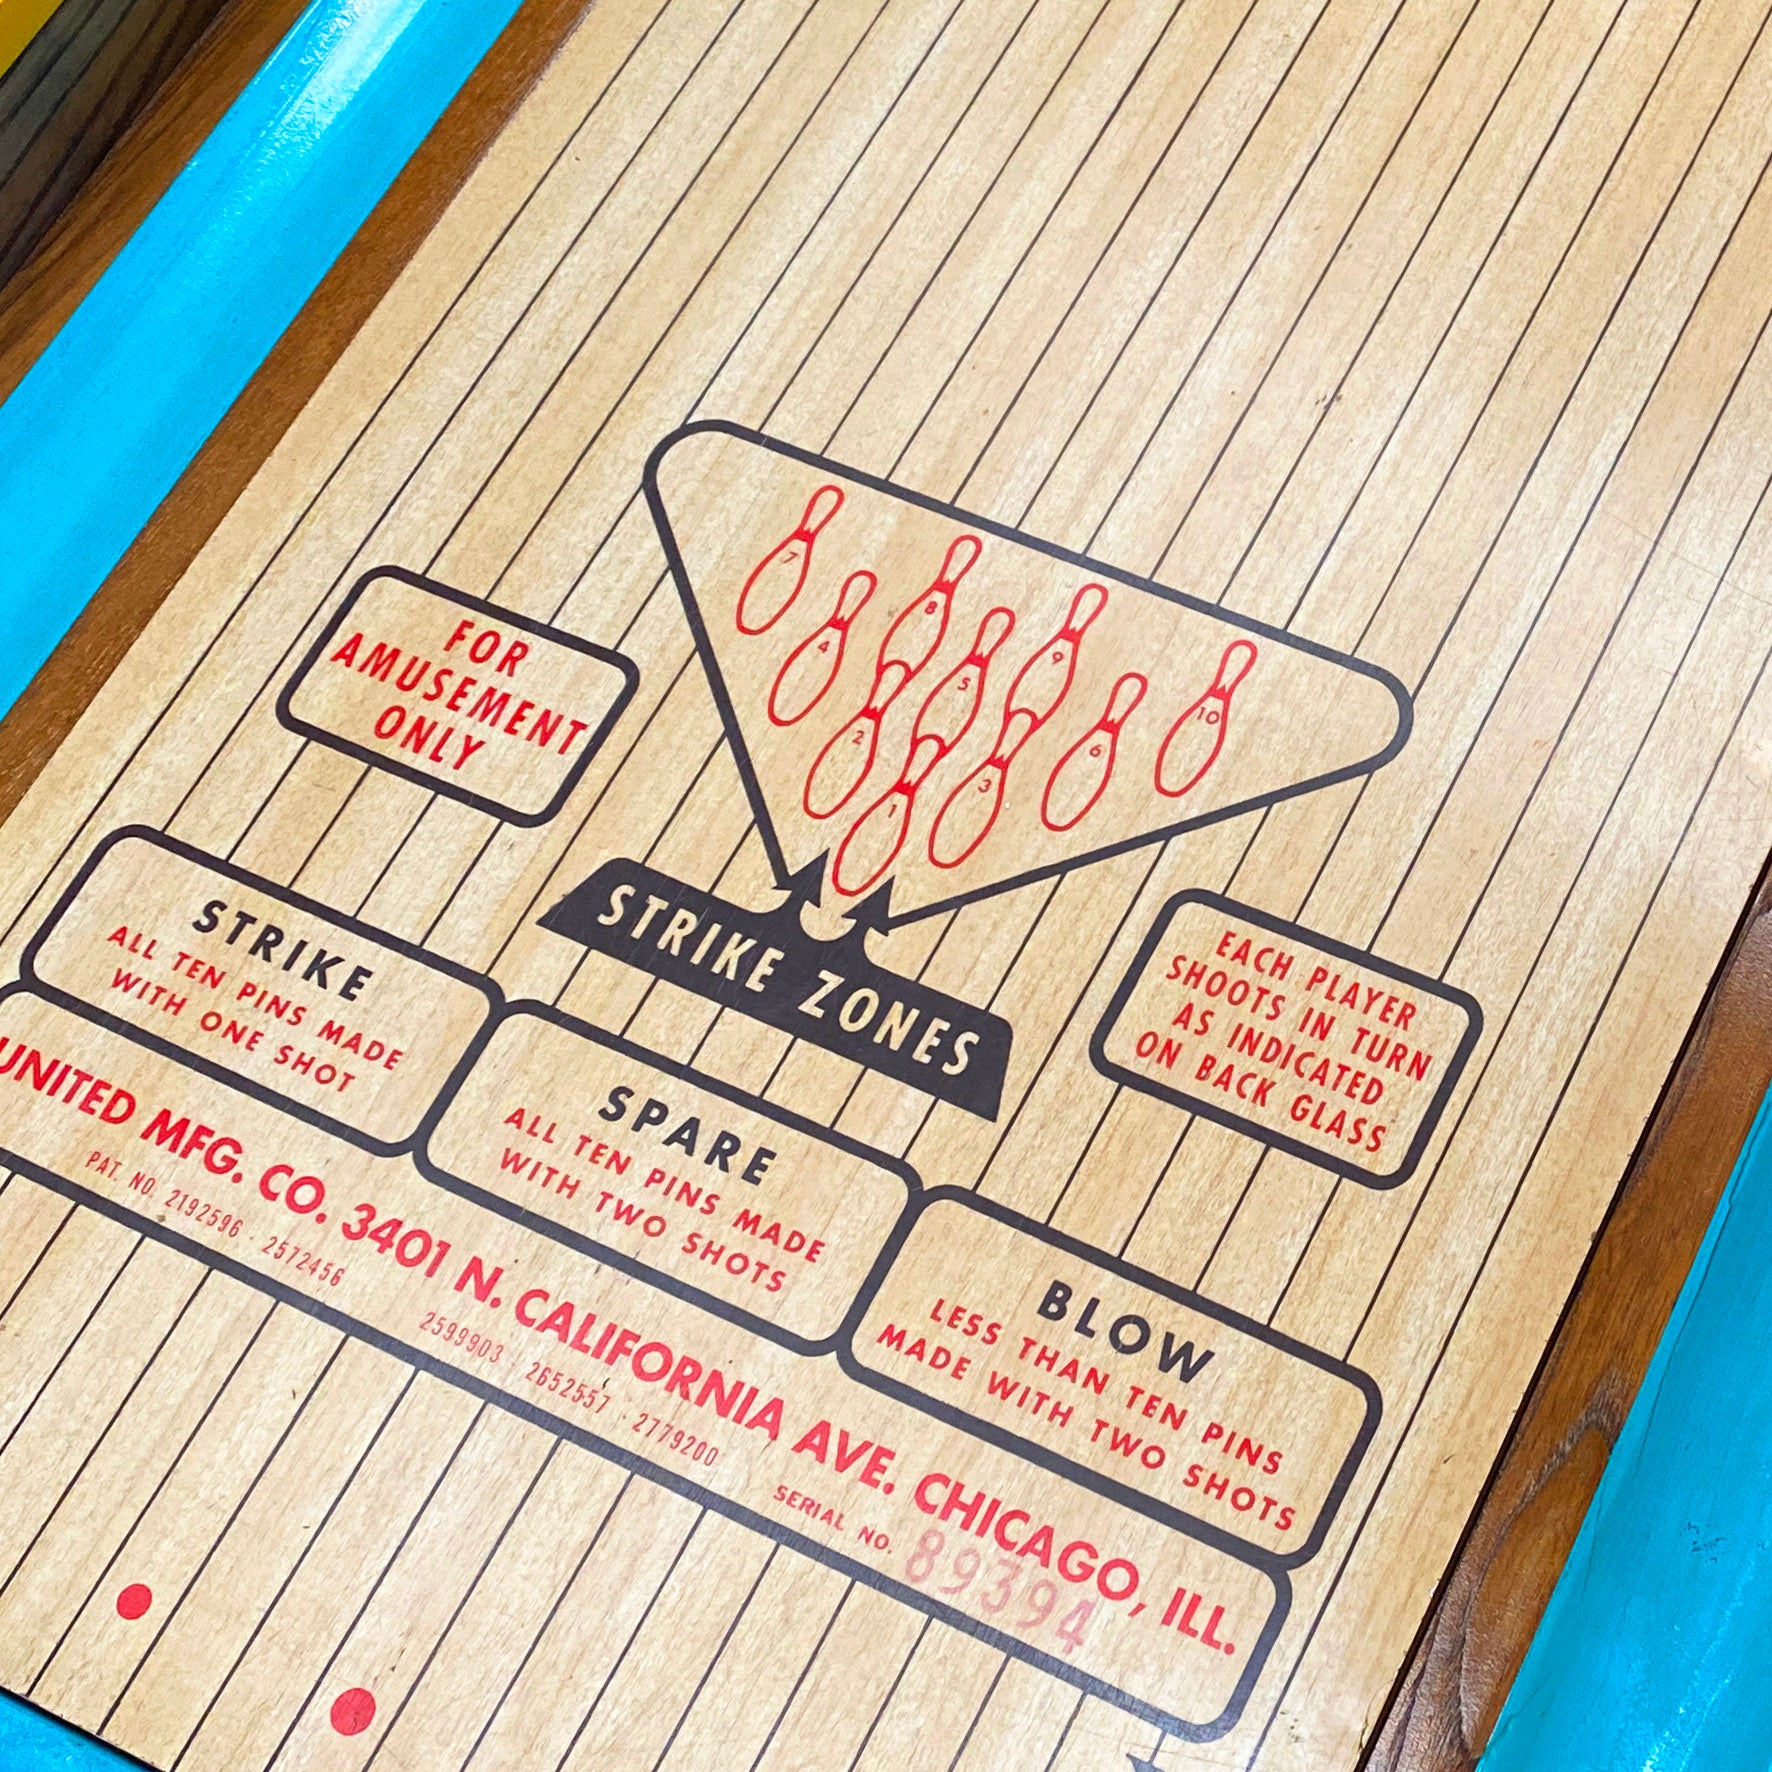 7
8
9
10
4
5
6
2
3
1
FOR
AMUSEMENT
ONLY
STRIKE ZONES
EACH PLAYER
SHOOTS IN TURN
AS INDICATED
ON BACK GLASS
STRIKE
ALL TEN PINS MADE
WITH ONE SHOT
SPARE
ALL TEN PINS MADE
WITH TWO SHOTS
BLOW
LESS THAN TEN PINS
MADE WITH TWO SHOTS
UNITED MFG. CO. 3401 N. CALIFORNIA AVE. CHICAGO, ILL.
PAT. NO. 2192596 · 2572456
2599903 · 2652557 · 2779200
SERIAL NO. 89394